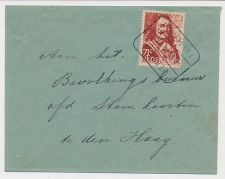 7½
Aan het
Bevolkings bureau
afd Stamkaarten
te den Haag